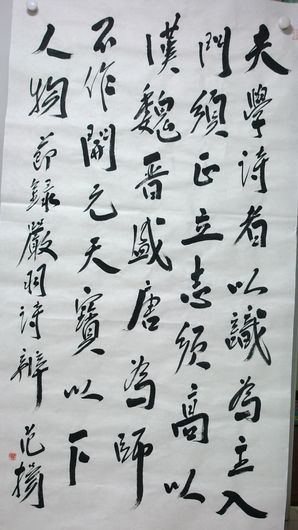 夫學詩者以識為主入
門須正立志須高以
漢魏晋盛唐為師
不作開元天寶以下
人物 節録嚴羽詩辨 范